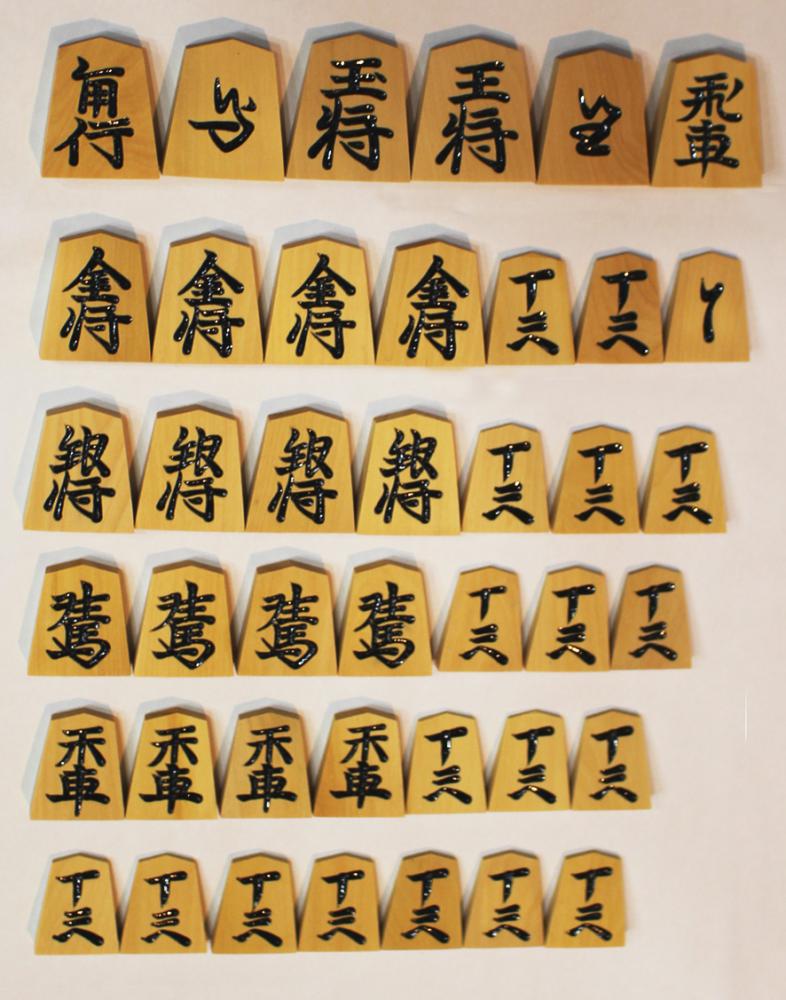 角行 馬 玉将 王将 龍 飛車
金将 金将 金将 金将 歩兵 歩兵 と
銀将 銀将 銀将 銀将 歩兵 歩兵 歩兵
桂馬 桂馬 桂馬 桂馬 歩兵 歩兵 歩兵
香車 香車 香車 香車 歩兵 歩兵 歩兵
歩兵 歩兵 歩兵 歩兵 歩兵 歩兵 歩兵